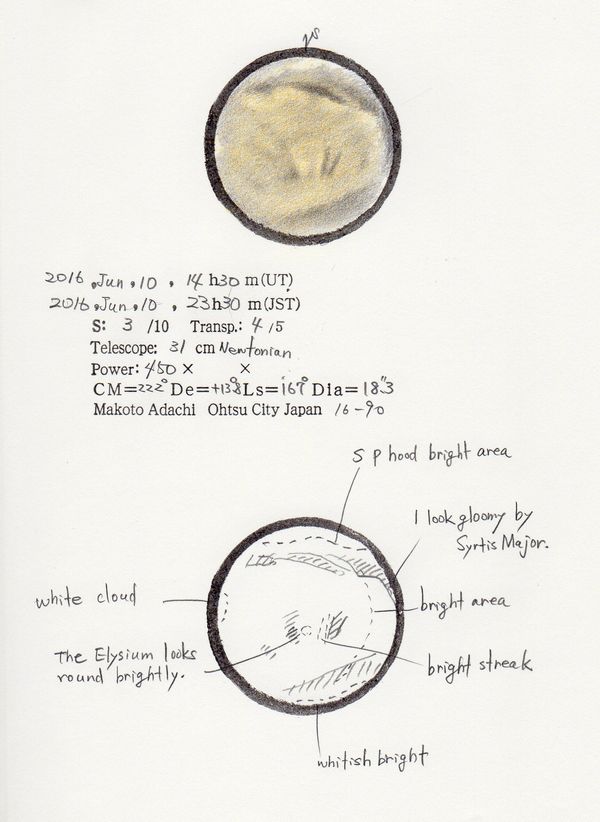 2016, Jun, 10, 14 h30 m(UT)
2016, Jun, 10, 23h30 m(JST)
S: 3 /10 Transp.: 4 /5
Telescope: 31 cm Newtonian
Power: 450 × ×
CM=222° De=+13.8° Ls=167° Dia=18."3
Makoto Adachi Ohtsu City Japan 16-90
S P hood bright area
I look gloomy by
Syrtis Major.
white cloud
bright area
The Elysium looks
round brightly.
bright streak
whitish bright